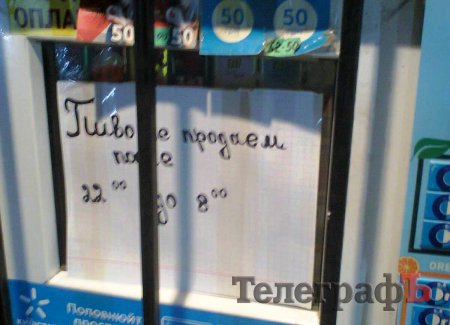 ОПЛА
50
50
50
50
52.50
Пиво не продаем
после
22 00 до 8 00
ТелеграфЪ
Поповнюйт